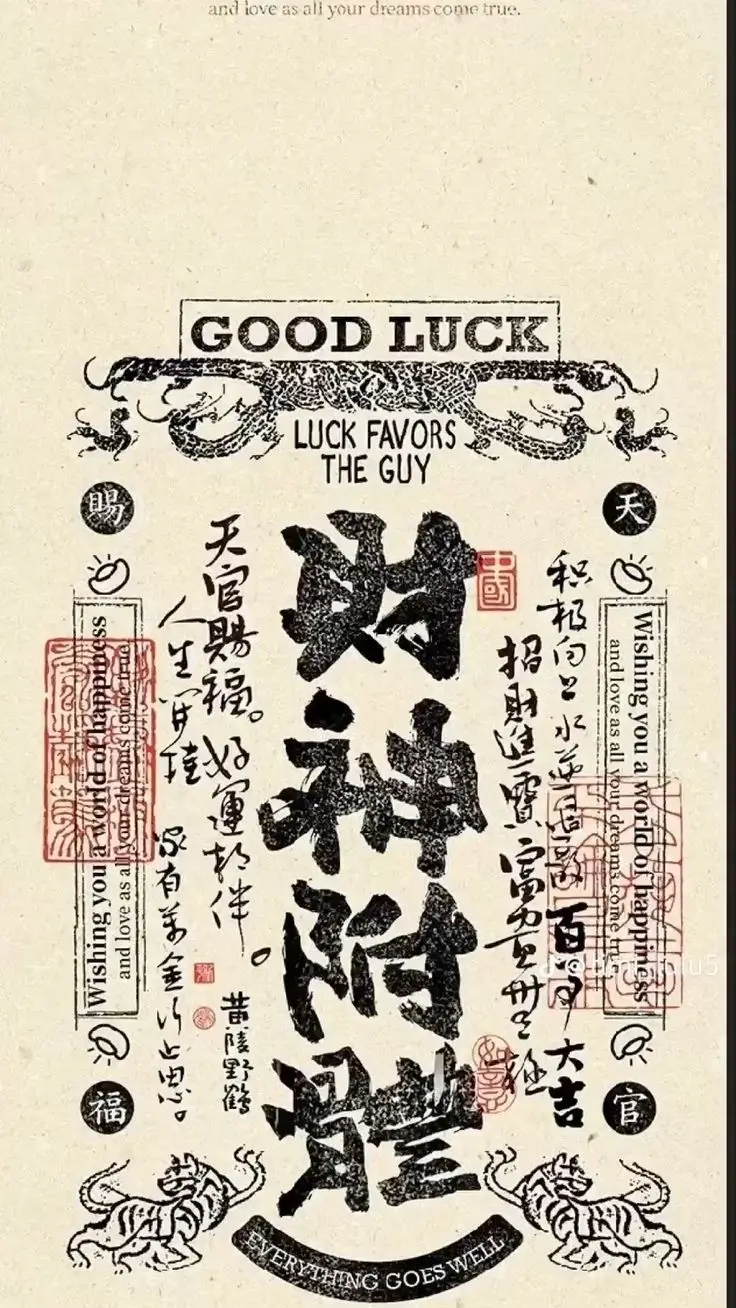 and love as all your dreams come true.
GOOD LUCK
LUCK FAVORS
THE GUY
天
官
賜
福
財神附體
中國
积极向上水逆退散百事大吉
招財進寶富贵无极
天官賜福。好運相伴。
人生开挂 家有萬金行止由心。
黄陵野鶴
Wishing you a world of happiness
and love as all your dreams come true.
Wishing you a world of happiness
and love as all your dreams come true.
EVERYTHING GOES WELL